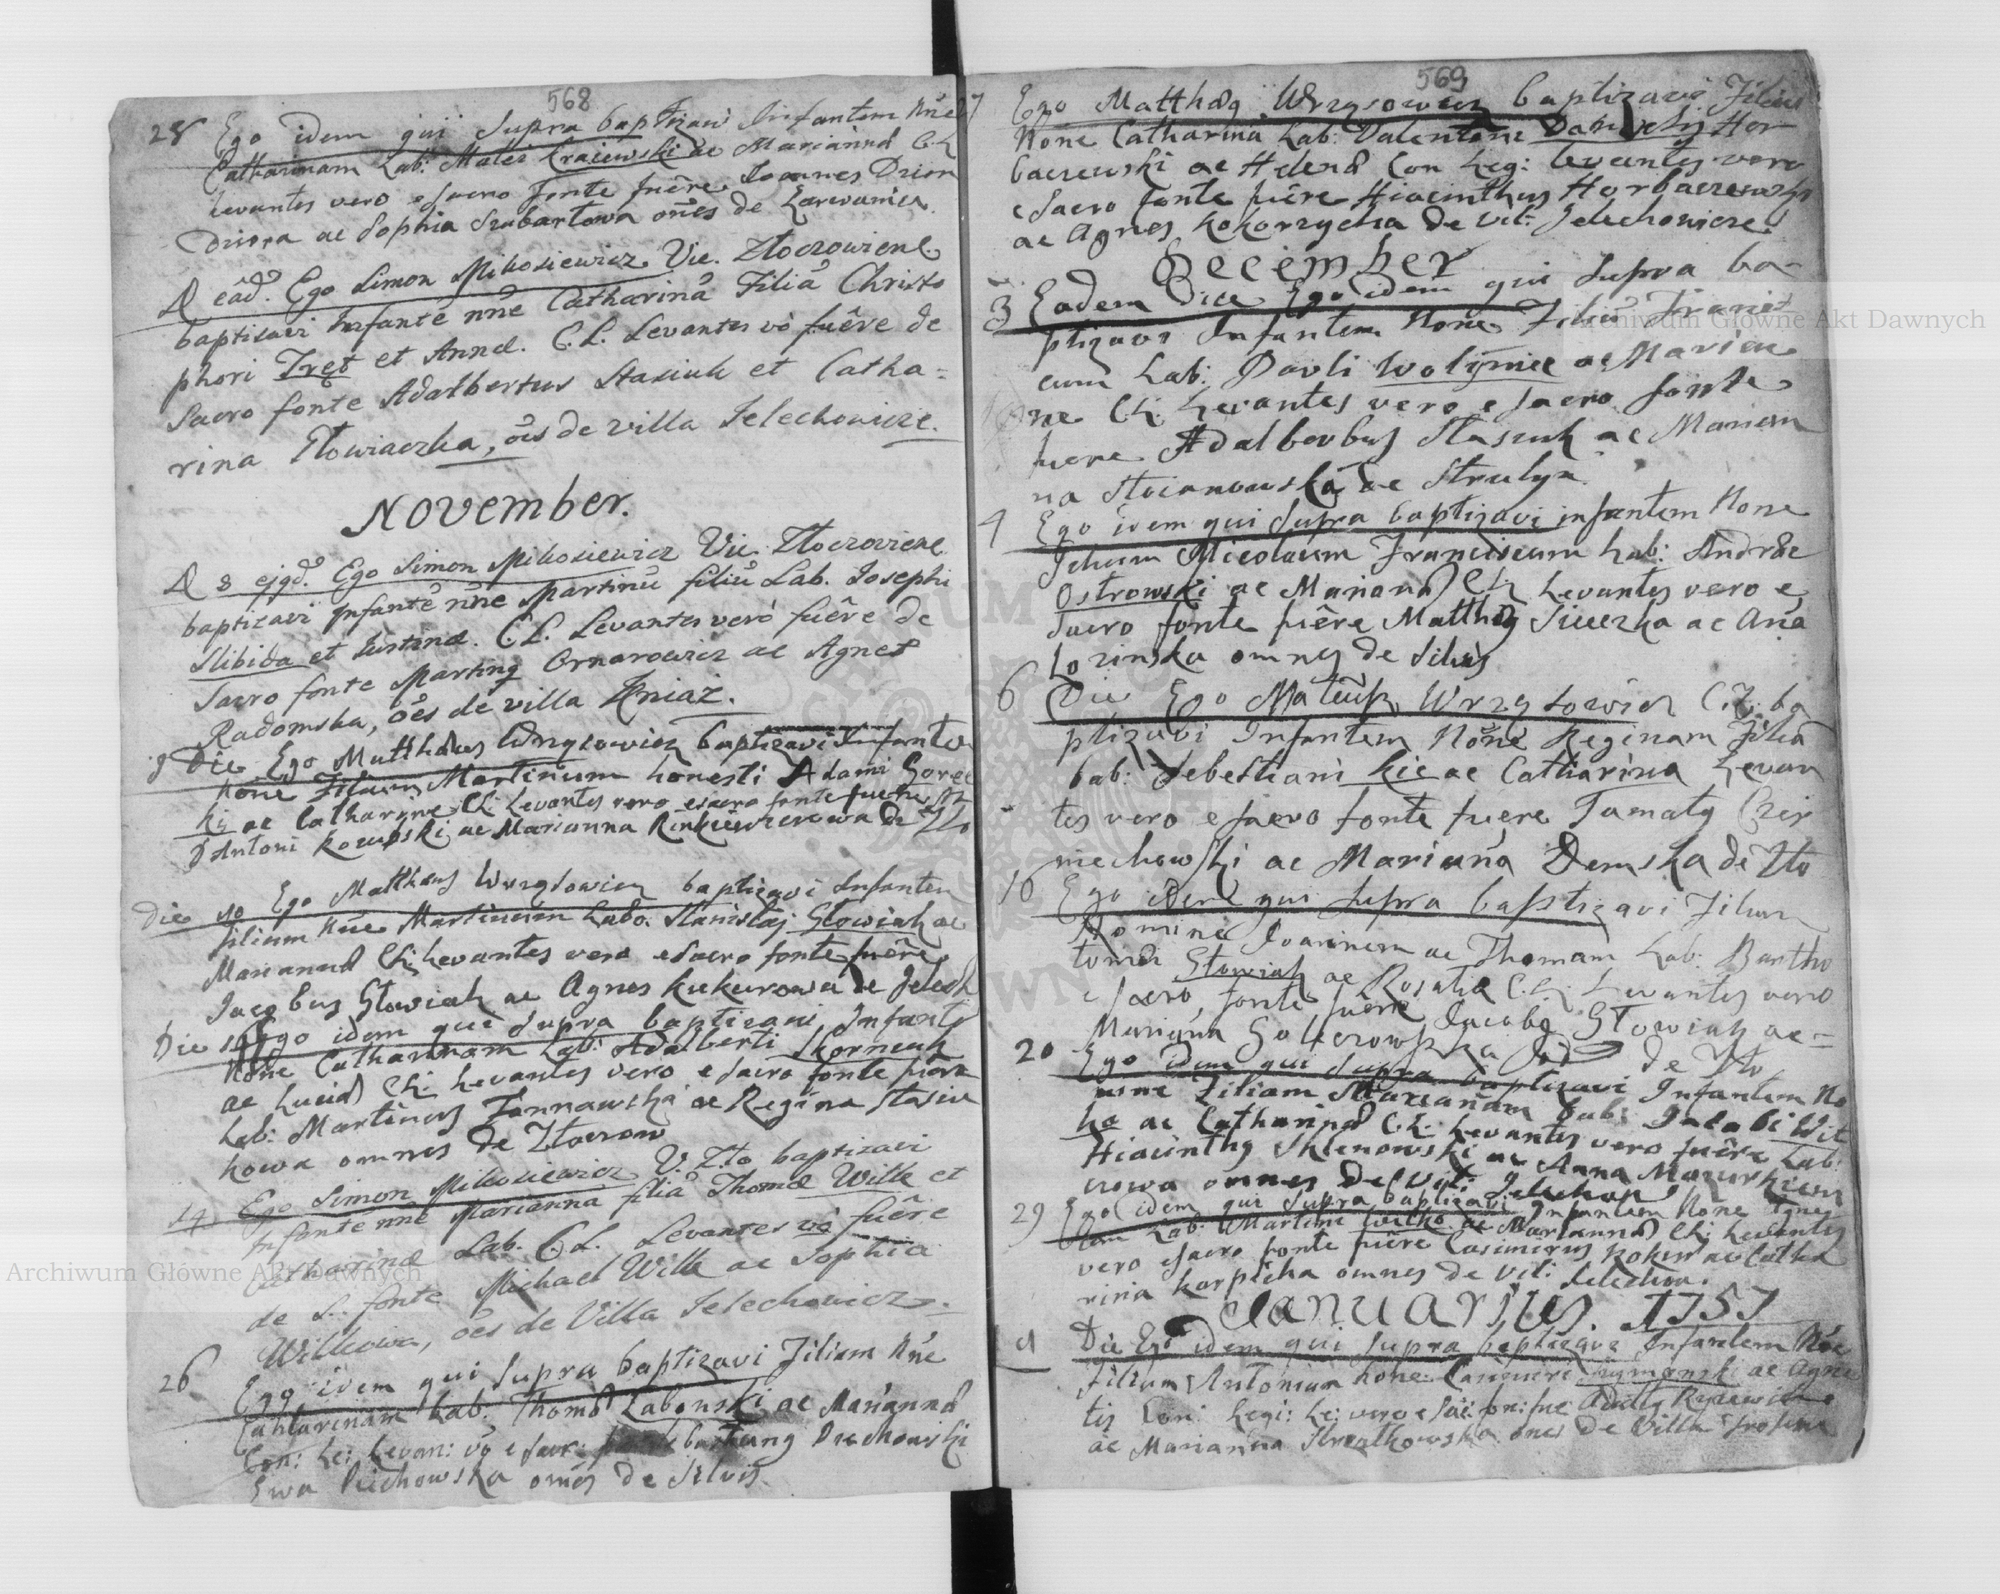 568
28 Ego idem qui supra baptizavi Infantem Nñe
Catharinam Lab: Matei Craiewski ac Mariannæ C. L.
Levantes vero e sacro fonte fuêre Joannes Dziora
Dziora ac Sophia Szubartowa oñes de
A eâd. Ego Simon Mikosiewicz Vic. Złoczoviens.
baptizavi Infantē nñe Catharinā Filiā Christo
phori Fręt et Annæ. C. L. Levantes vò fuêre de
Sacro fonte Adalbertus Stasiuk et Catha=
rina Słowiaczka, oēs de villa Jelechowicze.
November.
A 8 ejgd. Ego Simon Mikosiewicz Vic. Złoczoviens
baptizavi Infantē nñe Martinū filiū Lab. Josephi
Slibida et Justinæ. C. L. Levantes verò fuêre de
Sacro fonte Marting Ornarowicz ac Agnes
Radomska, oēs de villa Kniaż.
9 Die Ego Matthæus Wrzysowicz baptizavi Infantem
None Filium Martinum honesti Adami Gorec
ki ac Catharine C L: Levantes vero e sacro fonte fuere
Antoni Kozupski ac Marianna de Zło
Die 10 Ego Mattheus Wrzysowicz baptizavi Infantem
filium Nñe Martinum Labo. Stanislaj Słowiak ac
Mariannæ C L: Levantes vero e sacro fonte fuêre
Jacobus Słowiak ac Agnes Kukurowa de Jelech
Die Ego idem qui supra baptizavi Infante
None Catharinam Lab: Adalberti Skorneuk
ac Luciæ C L: Levantes vero e sacro fonte fuere
Lab: Martinus ac Regina Stasiu
kowa omnes de Złoczow
14 Ego Simon Mikosiewicz V. Zło baptizavi
Infantē nñe Marianna filiā Thomæ Wilk et
Catharinæ Lab. C. L. Levantes vò fuêre
de S. fonte Michael Wilk ac Sophia
Wilkowa, oēs de Villa Jelechowicze.
26 Ego idem qui supra baptizavi Filiam Nñe
Catharinam Lab. Thomæ Labonski ac Mariannæ
Con: Le: Levan: vò e sacr: Piechowski
Ewa Piechowska omēs de Silvis
569
Ego Matthæg Wrzysowicz baptizavi Filiā
None Catharinā Lab: Valentini Hor
baczewski ac Helenæ Con Leg: Levantes vero
e Sacro fonte fuêre Hiacinthus Horbaczewski
ac Agnes Kokorzycka de Vil: Jelechowicze
December
3 Eadem Die Ego idem qui supra ba-
ptizavi Infantem None Filiū Francis
cum Lab: Pavli Wolyniec ac Marian
ne C L: Levantes vero e sacro fonte
fuere Adalberbus Stasiuk ac Marian
na Stoianowska de Strutyn
4 Ego idem qui supra baptizavi infantem None
Filium Nicolaum Franciscum Lab: Andræ
Ostrowski ac Mariannæ C L: Levantes vero e
sacro fonte fuêre Matthæg Siuczka ac Aña
Lozinska omnes de Silvis
6 Die Ego Mateusz Wrzysowicz C. Z. ba
ptizavi Infantem None Reginam Filiā
Lab: Sebestiani Kic ac Catharina Levan
tes vero e sacro fonte fuere Tamaty Czer
niechowski ac Marianna Demska de Zło
10 Ego idem qui supra baptizavi Filium
Nomine Joannem ac Thomam Lab: Bartho
lomei Słowiak ac Rosaliæ C. L: Levantes vero
e sacro fonte fuêre Jacobg Słowiak ac=
Mariana de Zło
20 Ego idem qui supra baptizavi Infantem No
mine Filiam Mariañam Lab: Jacobi Wit
ko ac Catharinæ C. L: Levantes vero fuêre Lab:
Hiacinthg Sklenowski ac Anna Mazurkiewi
czowa omnes de Vil: Jelechow
29 Ego idem qui supra baptizavi Infantem None Agne
tam Lab: Martini Witko ac Mariannæ C L: Levantes
vero e sacro fonte fuêre Casimirus Koken ac Catha
rina Karpicha omnes de Vil: Jelechow.
Januarius. 1757
Die Ego idem qui supra baptizavi Infantem Nõe
Filium Antonium hone: Casimiri Szymanski ac Agne
tis Con: Legi: Le: vero e sac: fon: fue
ac Marianna Strzałkowska ones de Villa
Archiwum Główne Akt Dawnych
Archiwum Główne Akt Dawnych